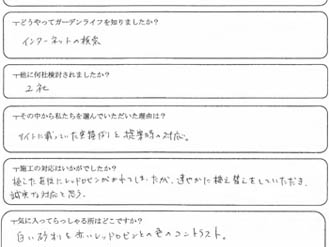 どうやってガーデンライフを知りましたか?
インターネットの検索
他に何社検討されましたか?
2社
その中から私たちを選んでいただいた理由は?
サイトに載っていた実接ばしと提案時の対応。
施工の対応はいかがでしたか?
植した直後にレッドロビンがかれてしまったが、速やかに植え替えをしていただき、
誠実な対応と思う。
気に入ってらっしゃる所はどこですか?
白い砂利と赤いレッドロビンとの色のコントラスト。